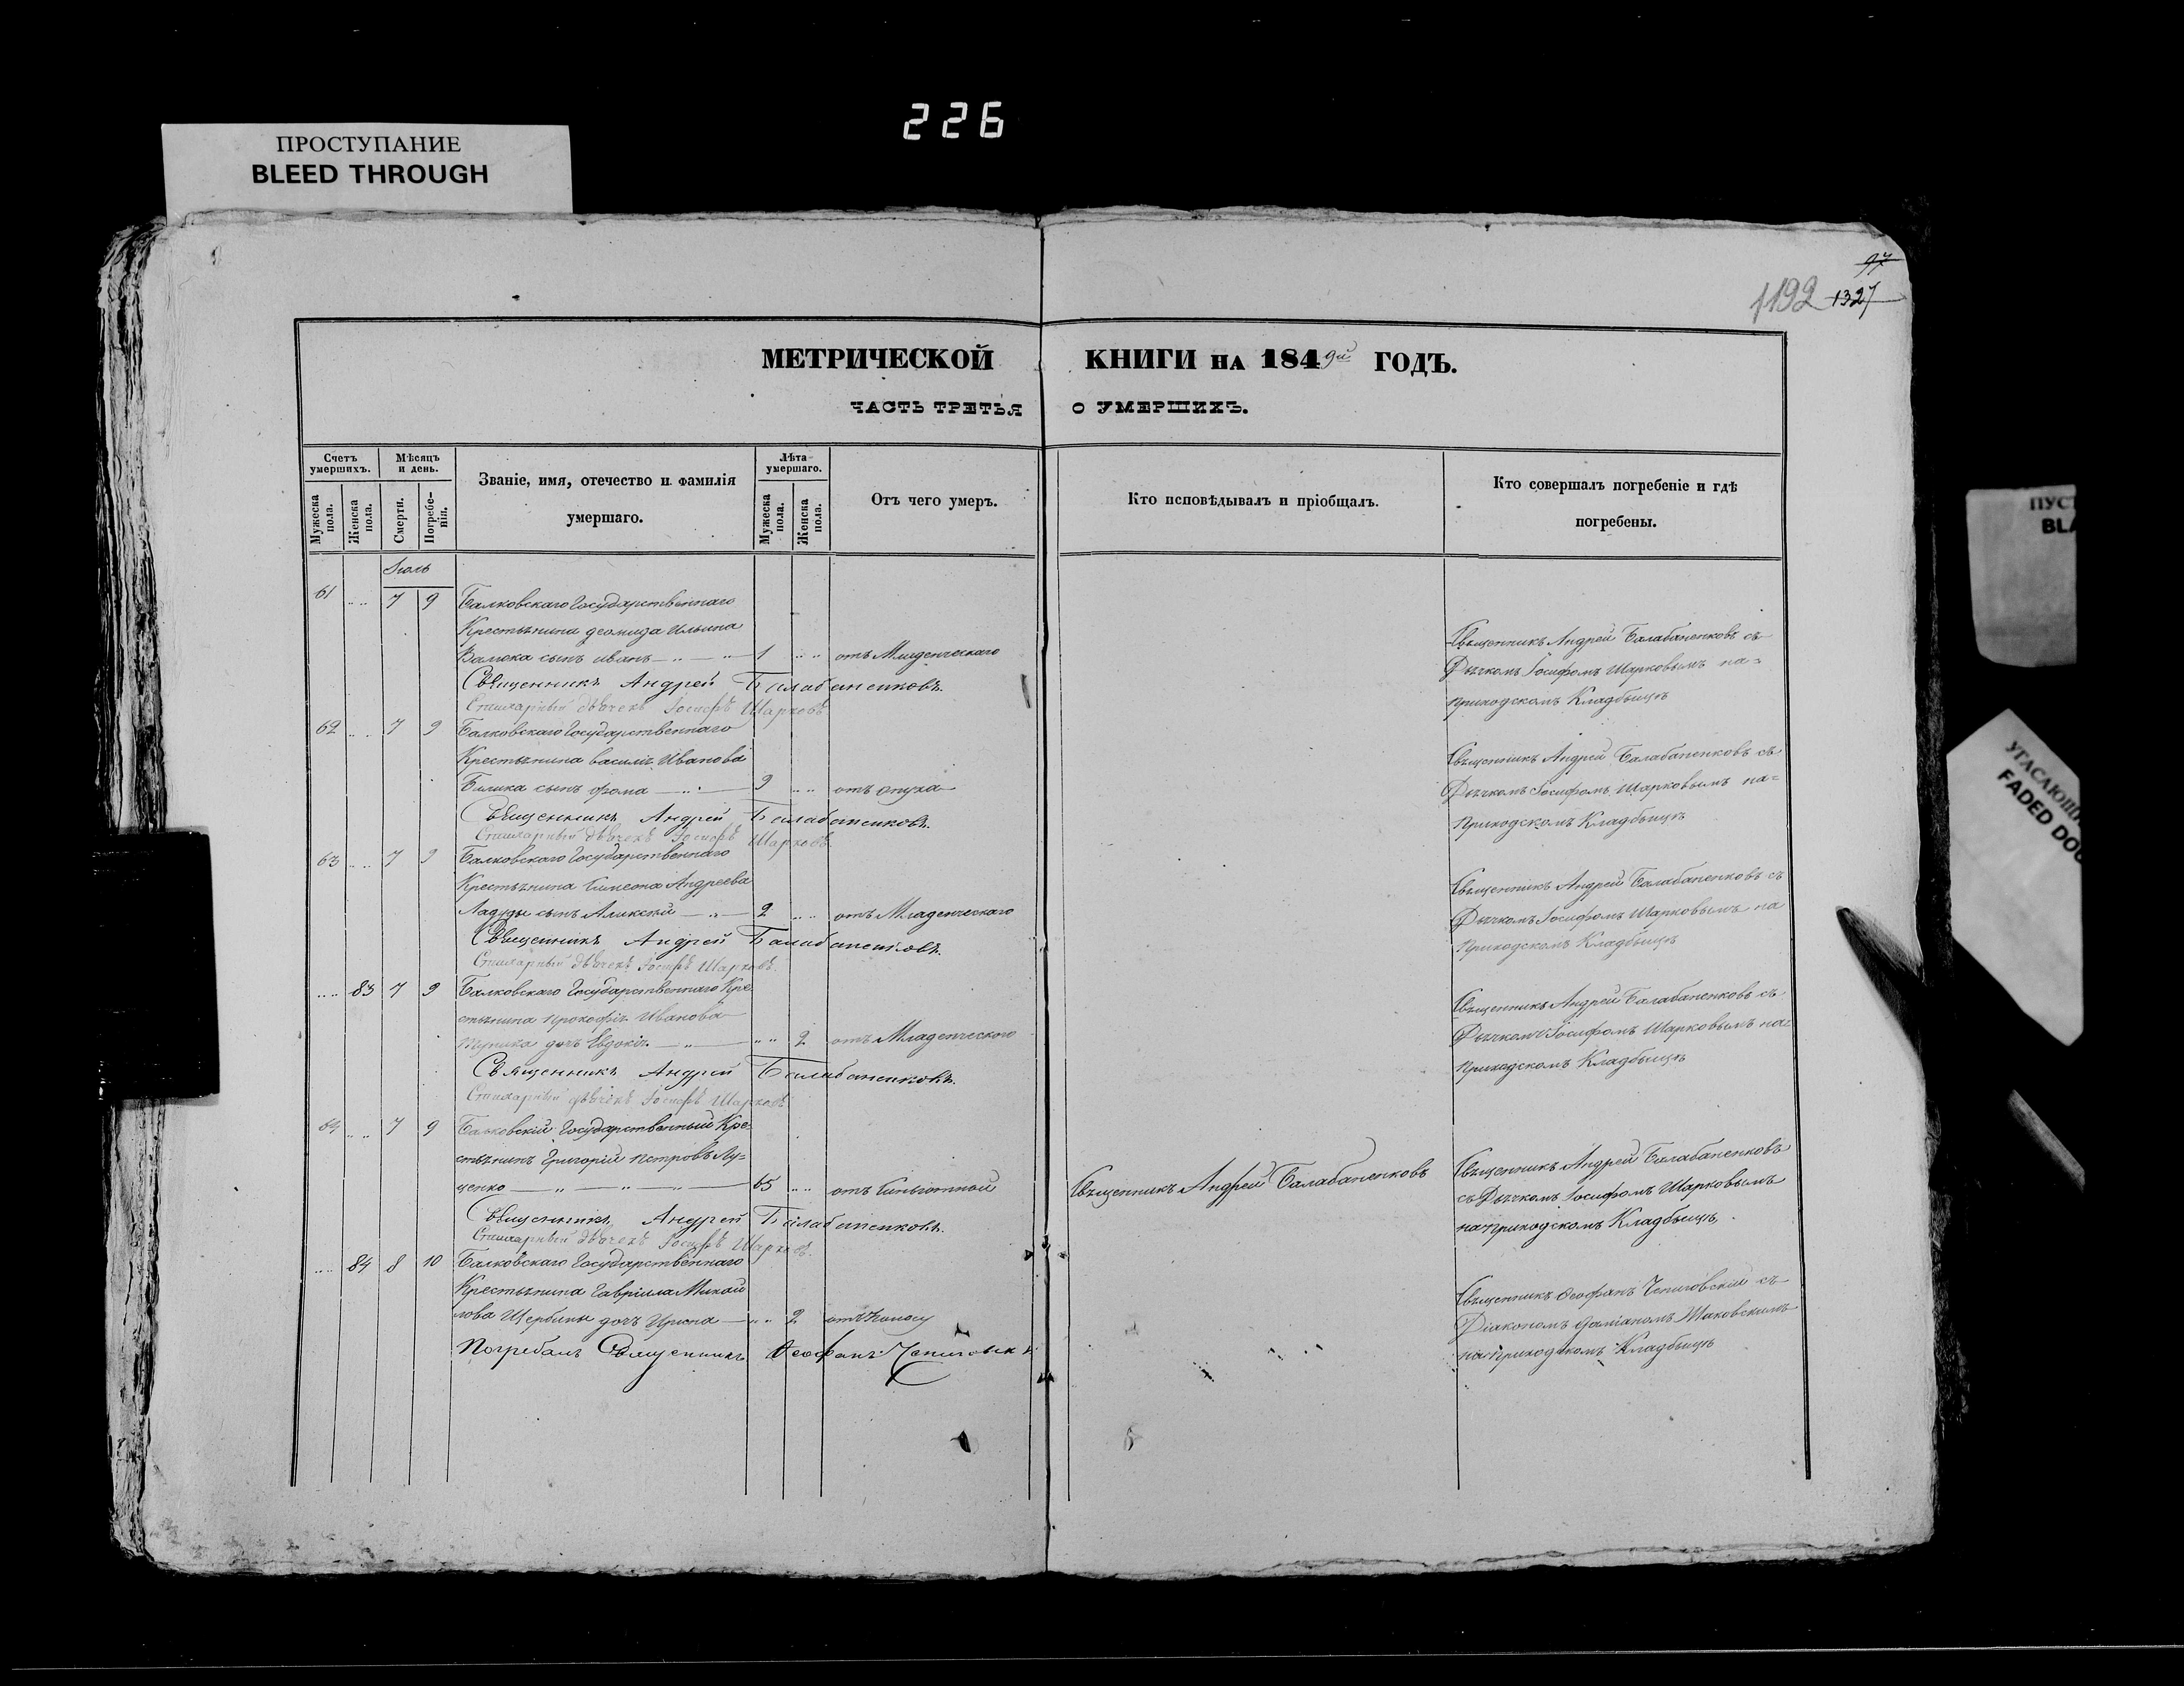 226
ПРОСТУПАНИЕ
BLEED THROUGH
97
1192 1327
МЕТРИЧЕСКОЙ КНИГИ НА 1849й ГОДЪ.
ЧАСТЬ ТРЕТЬЯ О УМЕРШИХЪ.
Счетъ умершихъ.
Мужеска пола.
Женска пола.
Мѣсяцъ и день.
Смерти.
Погребенія.
Званіе, имя, отечество и фамилія
умершаго.
Лѣта умершаго.
Мужеска пола.
Женска пола.
Отъ чего умеръ.
Кто исповѣдывалъ и пріобщалъ.
Кто совершалъ погребеніе и гдѣ
погребены.
Іюль
61 .. .. 7 9 Балковскаго Государственнаго
Крестьянина Деомида Ильина
сынъ Иванъ 1 .. .. отъ Младенческаго
Священникъ Андрей Балабаненковъ съ
Дьячкомъ Іосифомъ Шарковымъ на=
приходскомъ Кладбыщѣ
Священникъ Андрей Балабаненковъ.
дьячекъ Іосифъ Шарковъ
62 .. .. 7 9 Балковскаго Государственнаго
Крестьянина Василія Иванова
Билика сынъ Фома 9 .. .. отъ опуха
Священникъ Андрей Балабаненковъ съ
Дьячкомъ Іосифомъ Шарковымъ на=
Приходскомъ Кладбыщѣ
Священникъ Андрей Балабаненковъ.
дьячекъ Іосифъ Шарковъ.
63 .. .. 7 9 Балковскаго Государственнаго
Крестьянина Симеона Андреева
Ладуды сынъ Алексѣй 2 .. .. отъ Младенческаго
Священникъ Андрей Балабаненковъ съ
Дьячкомъ Іосифомъ Шарковымъ на
Приходскомъ Кладбыщѣ
Священникъ Андрей Балабаненковъ.
дьячекъ Іосифъ Шарковъ.
.. .. 83 7 9 Балковскаго Государственнаго Кре
стьянина Прокофія Иванова
дочь Евдокія .. .. 2 отъ Младенческаго
Священникъ Андрей Балабаненковъ съ
Дьячкомъ Іосифомъ Шарковымъ на=
Приходскомъ Кладбыщѣ
Священникъ Андрей Балабаненковъ.
дьячекъ Іосифъ Шарковъ
64 .. .. 7 9 Балковскій Государственный Кре=
стьянинъ Григорій Петровъ Лу=
ценко 65 .. .. отъ
Священникъ Андрей Балабаненковъ
Священникъ Андрей Балабаненковъ
съ Дьячкомъ Іосифомъ Шарковымъ
на приходскомъ Кладбыщѣ
Священникъ Андрей Балабаненковъ.
дьячекъ Іосифъ Шарковъ.
.. .. 84 8 10 Балковскаго Государственнаго
Крестьянина Гавріила Михай
лова Щербины дочь Ирина .. .. 2 отъ поносу
Священникъ Феофанъ съ
Діакономъ Даміаномъ Маковскимъ
на приходскомъ Кладбыщѣ
Погребалъ Священникъ Феофанъ
ПУСТ
BLA
УГАСАЮЩИ
FADED DOC